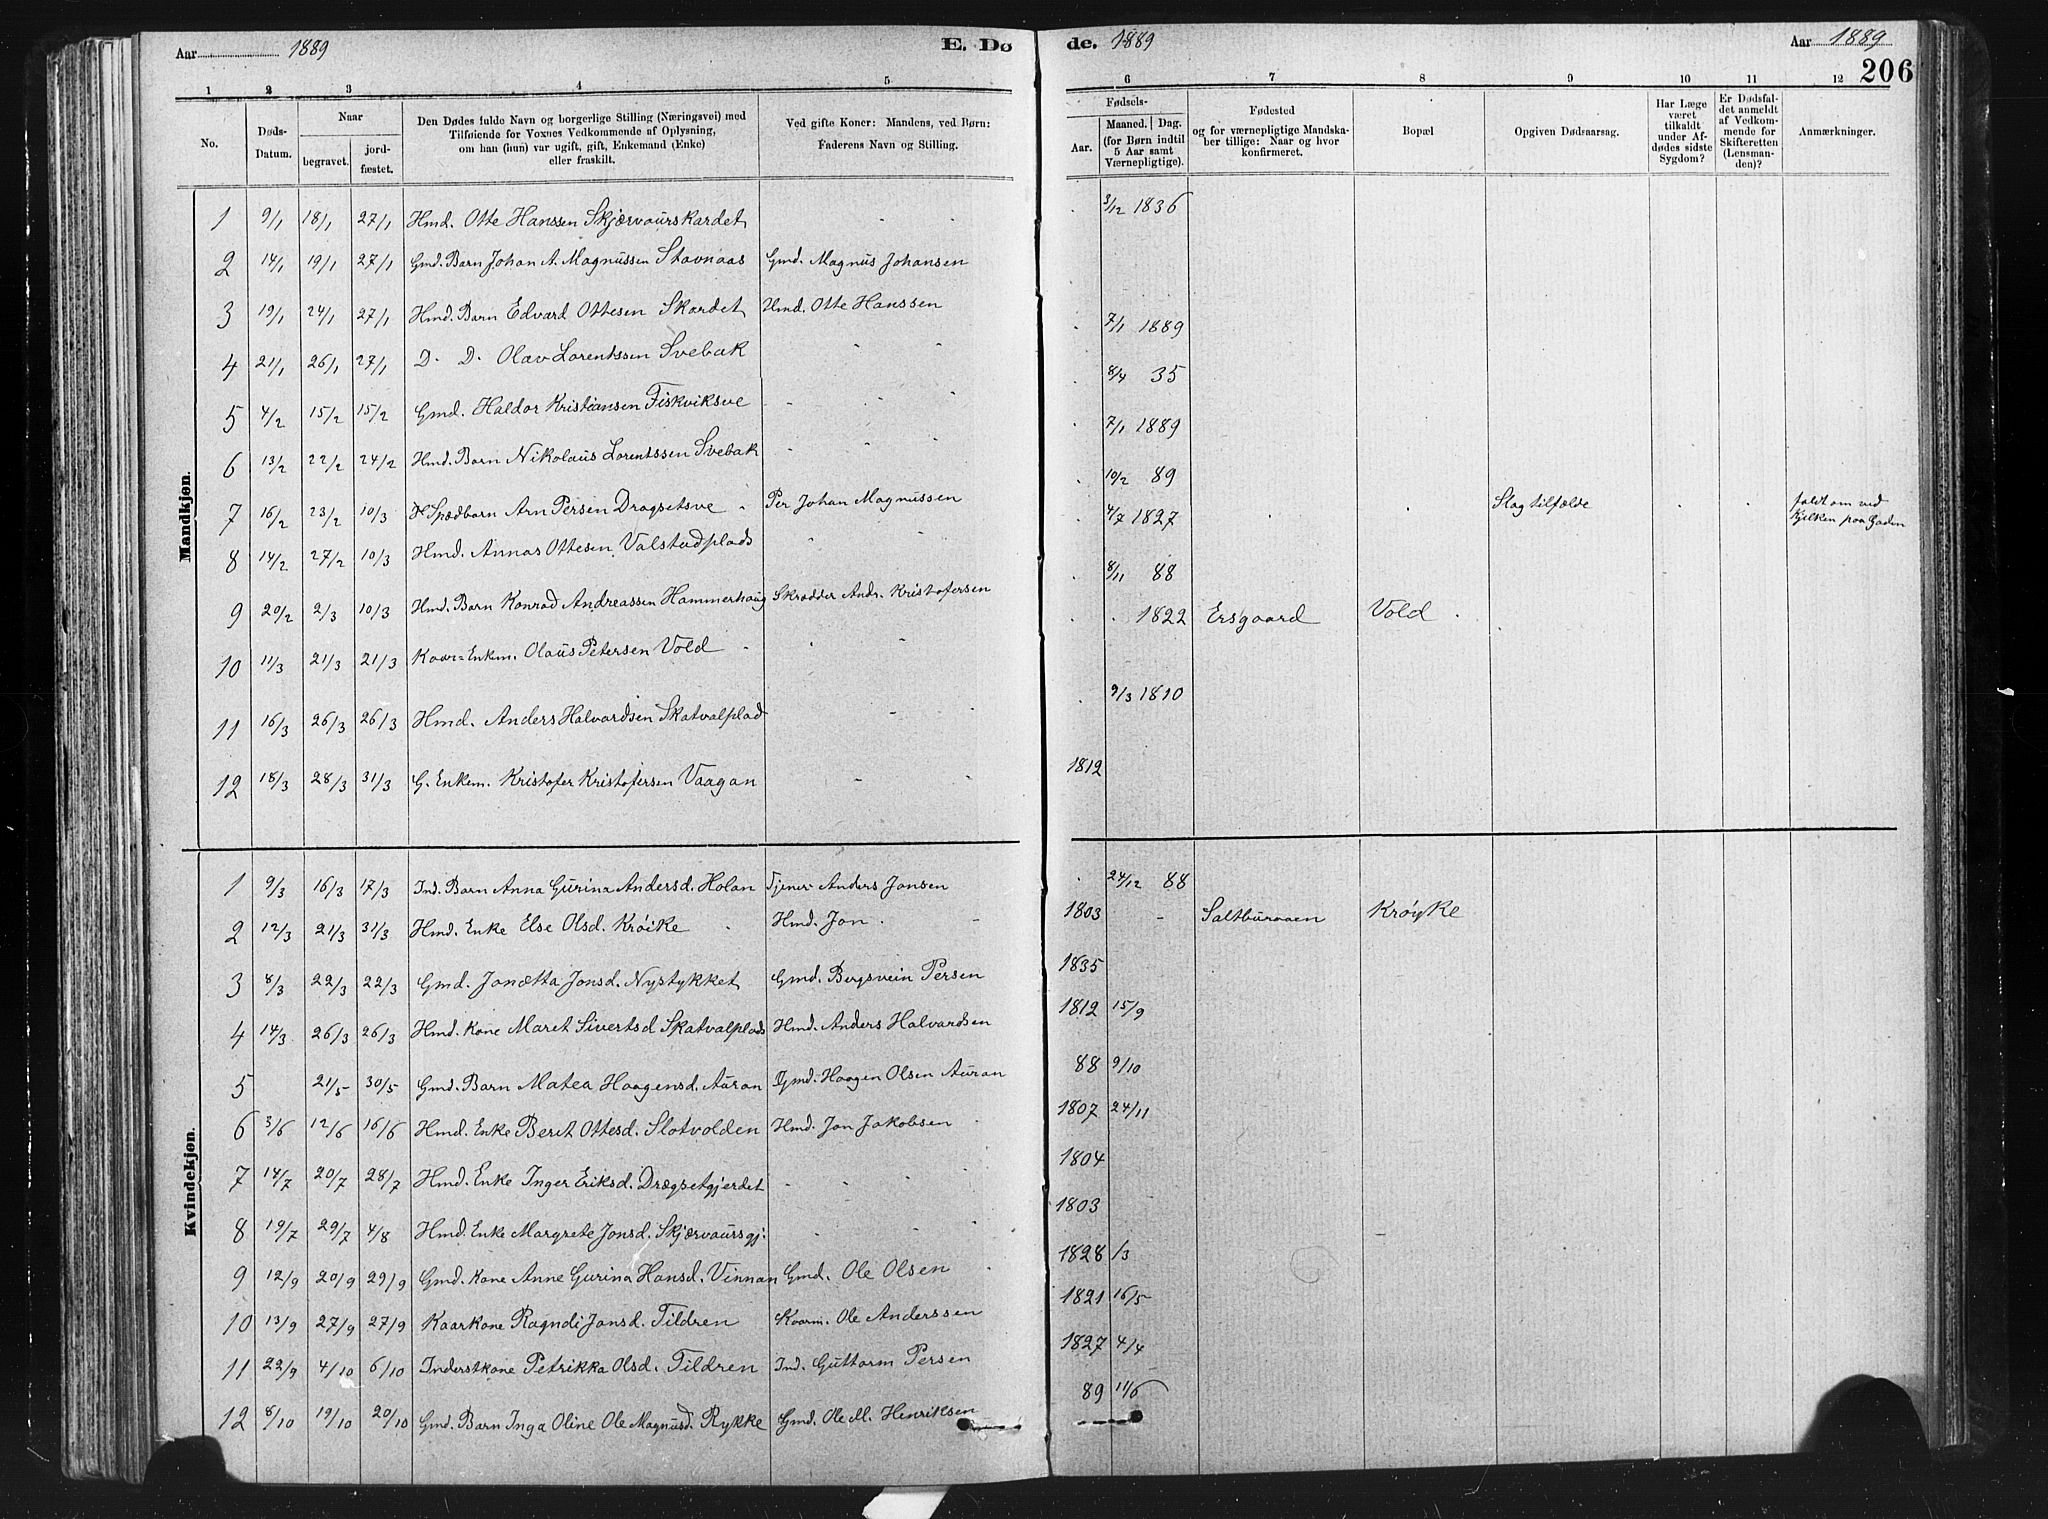 Aar 1889 E. Dø de. 1889 Aar 1889
206
1 2 3 4 5 6 7 8 9 10 11 12
No.
Døds-Datum.
Naar
begravet.
jordfæstet.
Den Dødes fulde Navn og borgerlige Stilling (Næringsvei) med
Tilføiende for Voxnes Vedkommende af Oplysning,
om han (hun) var ugift, gift, Enkemand (Enke)
eller fraskilt.
Ved gifte Koner: Mandens, ved Børn:
Faderens Navn og Stilling.
Fødsels-
Aar.
Maaned. Dag.
(for Børn indtil
5 Aar samt
Værnepligtige).
Fødested
og for værnepligtige Mandska-
ber tillige: Naar og hvor
konfirmeret.
Bopæl
Opgiven Dødsaarsag.
Har Læge
været
tilkaldt
under Af-
dødes sidste
Sygdom?
Er Dødsfal-
det anmeldt
af Vedkom-
mende for
Skifteretten
(Lensman-
den)?
Anmærkninger.
Mandkjøn.
1 9/1 18/1 27/1 Hmd. Otte Hanssen Skjærvaurskardet 3/12 1836
2 14/1 19/1 27/1 Gmd. Barn Johan A. Magnussen Stavnaas Gmd. Magnus Johansen
3 19/1 24/1 27/1 Hmd. Barn Edvard Ottesen Skardet Hmd. Otte Hanssen 7/1 1889
4 21/1 26/1 27/1 D. D. Olav Lorentssen Svebak 8/4 35
5 4/2 15/2 15/2 Gmd. Haldor Kristiansen Fiskviksve 7/1 1889
6 13/2 22/2 24/2 Hmd. Barn Nikolaus Lorentssen Svebak 10/2 89
7 16/2 23/2 10/3 Spædbarn Arn Persen Dragsetsve Per Johan Magnussen 4/7 1827 Slagtilfælde faldt om ved Kjelken paa Gaden
8 14/2 27/2 10/3 Hmd. Annas Ottesen Valstadplads 8/11 88
9 20/2 2/3 10/3 Hmd. Barn Konrad Andreassen Hammerhaug Skrædder Andr. Kristofersen 1822 Ersgaard Vold
10 11/3 21/3 21/3 Kaar=Enkem. Olaus Petersen Vold 9/3 1810
11 16/3 26/3 26/3 Hmd. Anders Halvardsen Skatvalplad
12 18/3 28/3 31/3 G. Enkem. Kristofer Kristofersen Vaagan 1812
Kvindekjøn.
1 9/3 16/3 17/3 Ind. Barn Anna Gurina Andersd. Holan Tjener Anders Jonsen 24/12 88
2 12/3 21/3 31/3 Hmd. Enke Else Olsd. Krøike Hmd. Jon 1803 Saltburaaen Krøyke
3 8/3 22/3 22/3 Gmd. Jonetta Jonsd. Nystykket Gmd. Bergsvein Persen 1835
4 14/3 26/3 26/3 Hmd. Kone Maret Sivertsd Skatvalplads Hmd. Anders Halvardsen 1812 15/9
5 21/5 30/5 Gmd. Barn Matea Haagensd. Auran Gmd. Haagen Olsen Auran 88 9/10
6 3/6 12/6 16/6 Hmd. Enke Berit Ottesd. Slotvolden Hmd. Jon Jakobsen 1807 24/11
7 14/7 20/7 28/7 Hmd. Enke Inger Eriksd. Drægsetgjerdet 1804
8 19/7 29/7 4/8 Hmd. Enke Margrete Jonsd. Skjærvaursgj. 1803
9 12/9 20/9 29/9 Gmd. Kone Anne Gurina Hansd. Vinnan Gmd. Ole Olsen 1828 1/3
10 13/9 27/9 27/9 Kaarkone Ragndi Jonsd. Tildren Kaarm. Ole Anderssen 1821 16/5
11 22/9 4/10 6/10 Inderstkone Petrikka Olsd. Tildren Ind. Guttorm Persen 1827 4/4
12 8/10 19/10 20/10 Gmd. Barn Inga Oline Ole Magnusd. Rykke Gmd. Ole M. Henriksen 89 11/6